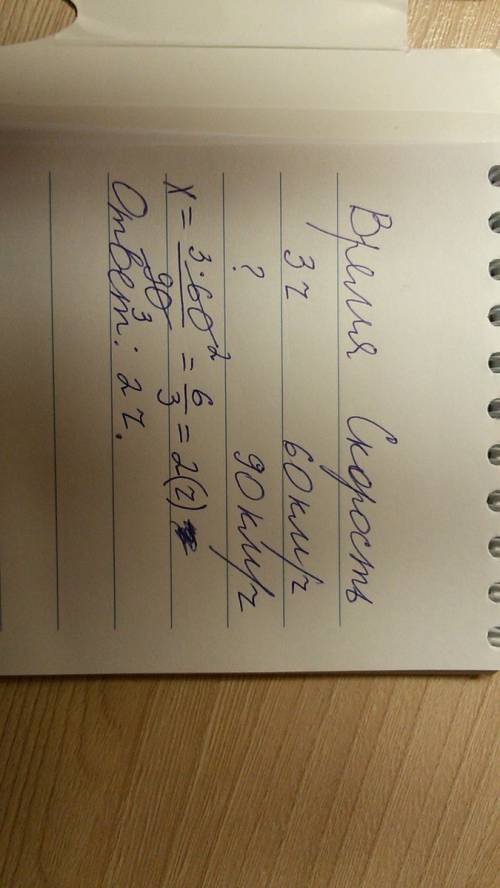 Время Скорость
3ч 60км/ч
? 90км/ч
x = 3·60² / 90³ = 6/3 = 2(ч)
Ответ: 2ч.